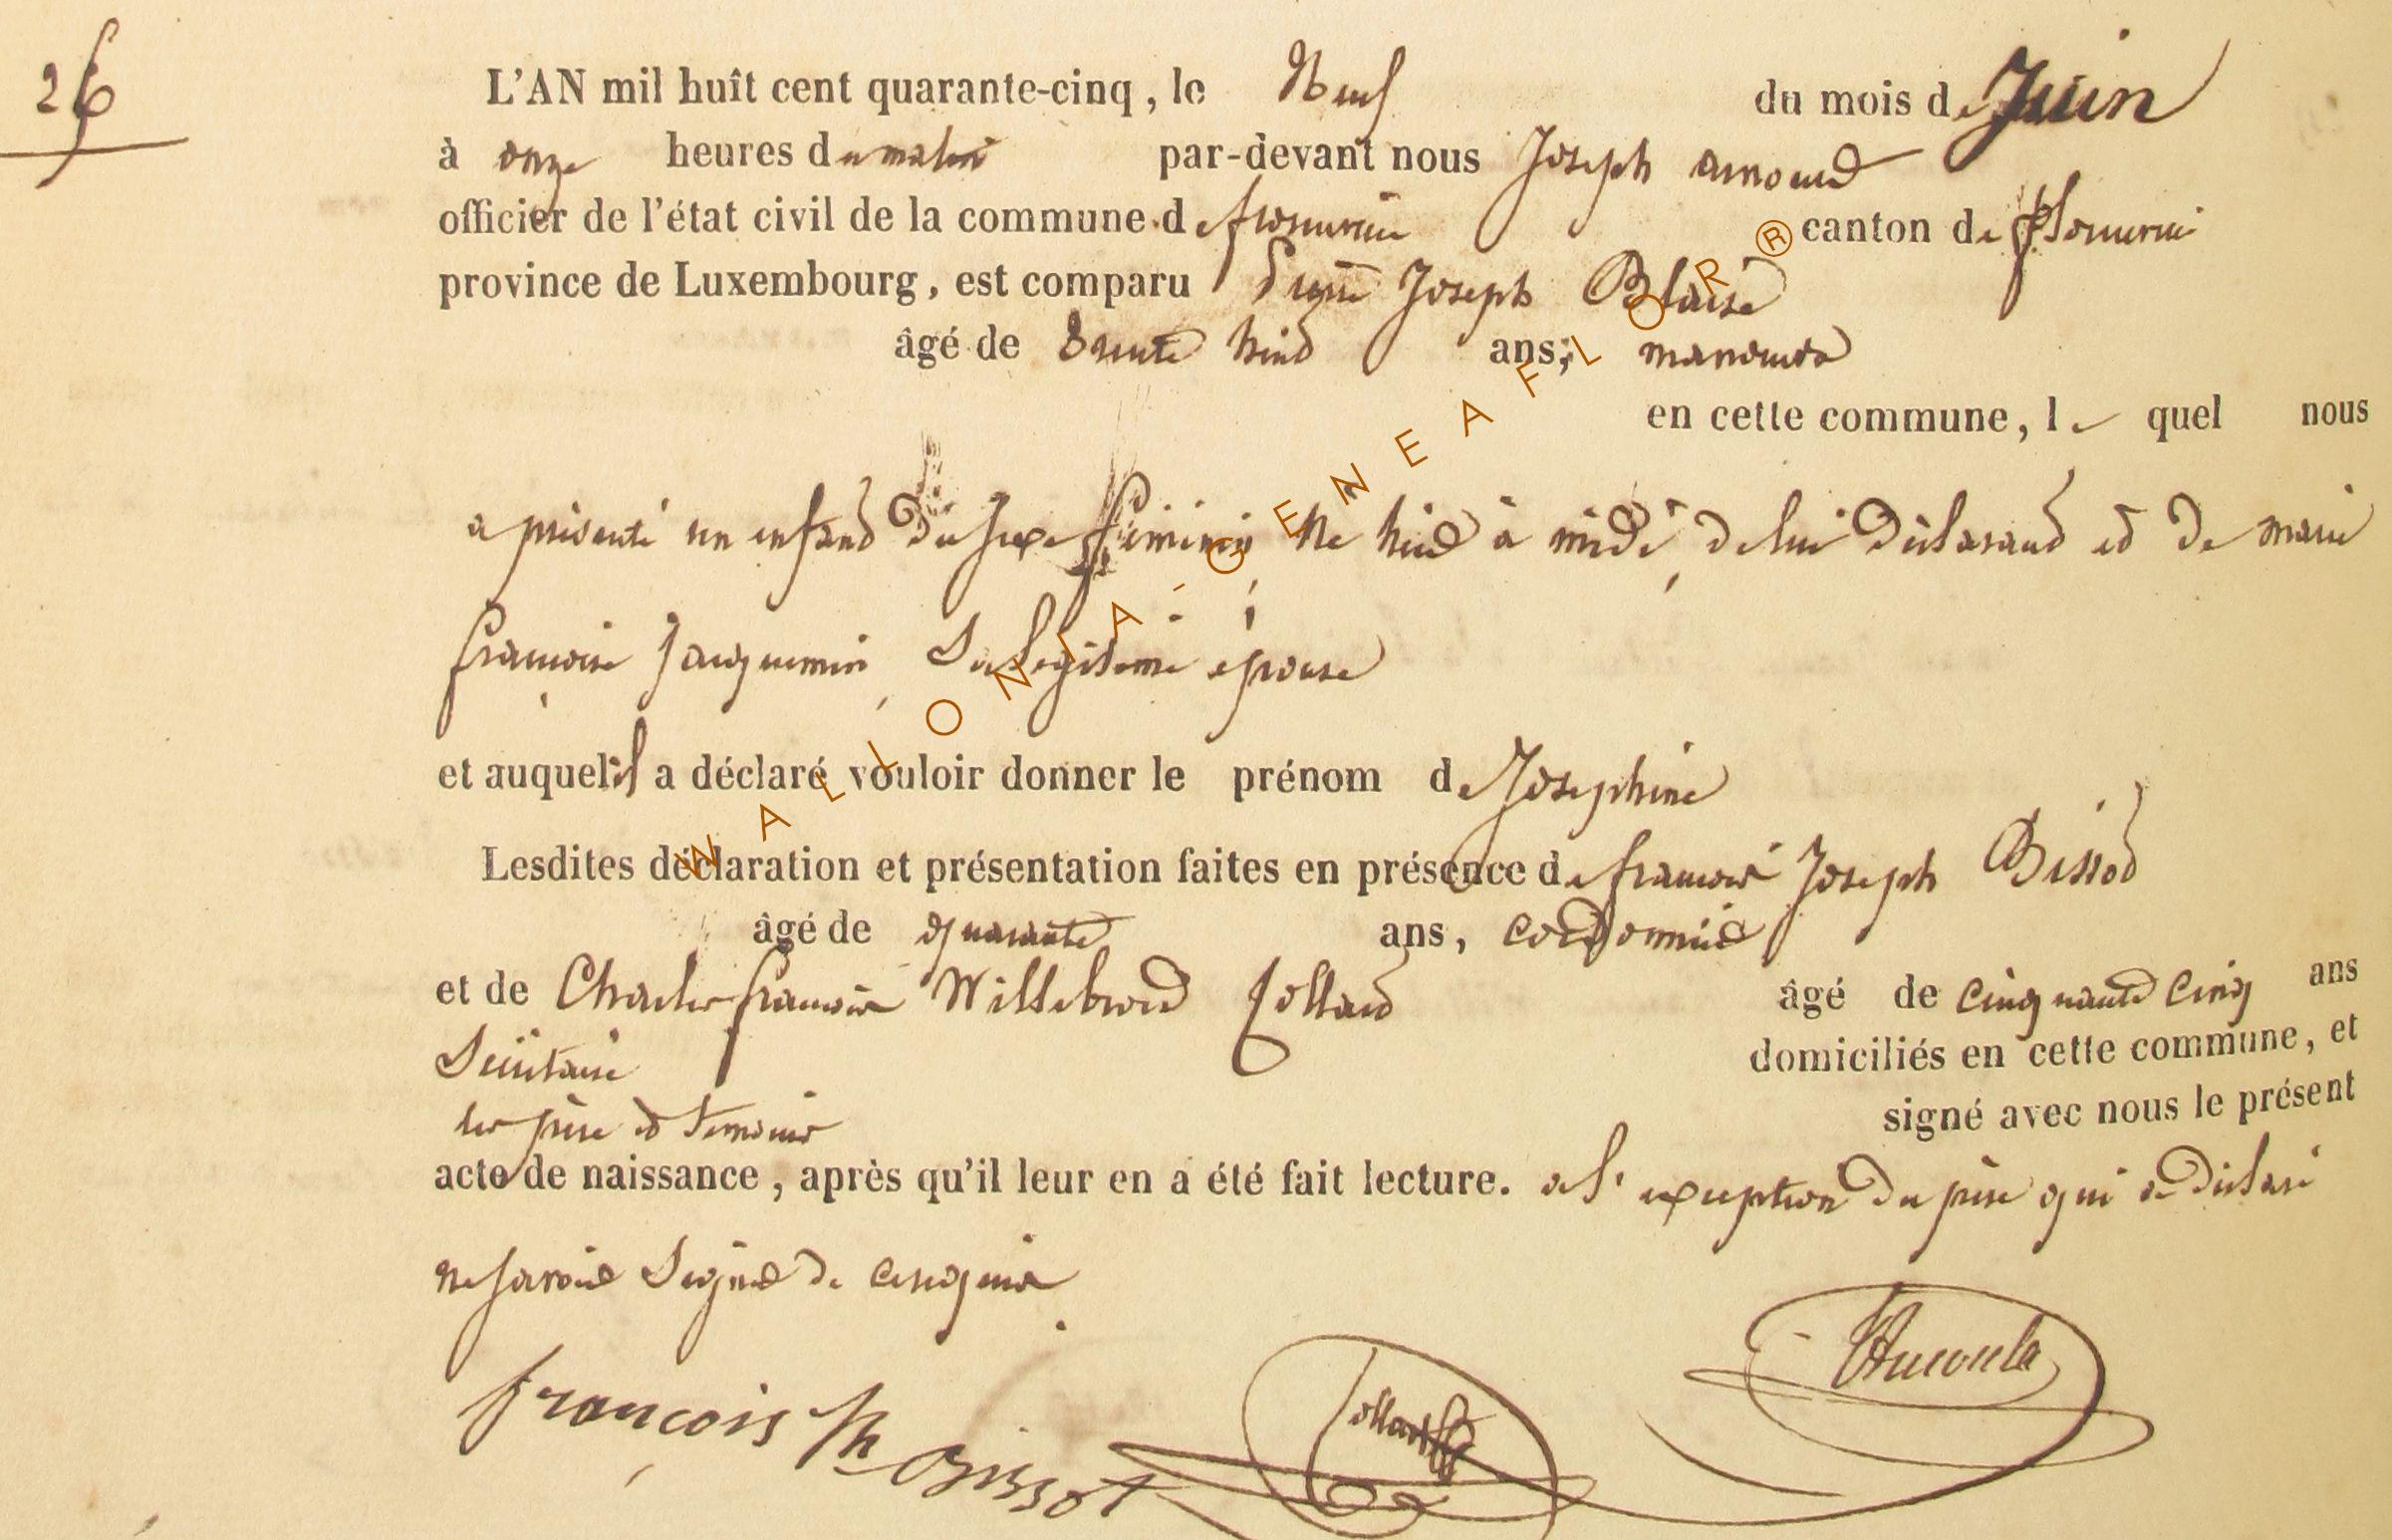 26
L'AN mil huît cent quarante-cinq, le Neuf du mois de Juin
à onze heures du matin par-devant nous Joseph arnould
officier de l'état civil de la commune de florenville canton de florenville
province de Luxembourg, est comparu Joseph Blaise
âgé de trente huit ans, manouvre
en cette commune, le quel nous
a présenté un enfant du sexe féminin né hier à midi, de lui déclarant et de marie
françoise Jacquemin, Sa légitime épouse
et auquel il a déclaré vouloir donner le prénom de Josephine
Lesdites déclaration et présentation faites en présence de françois Joseph Bissot
âgé de quarante ans, cordonnier
et de Charles françois Willebrord Collard âgé de cinquante cinq ans
Secrétaire domiciliés en cette commune, et
les père et temoins signé avec nous le présent
acte de naissance, après qu'il leur en a été fait lecture. a l'exception du père qui a déclaré
ne savoir Signer de ce requis
françois Jh Bissot
Collard
WALLONIA-GENEAFLOR®